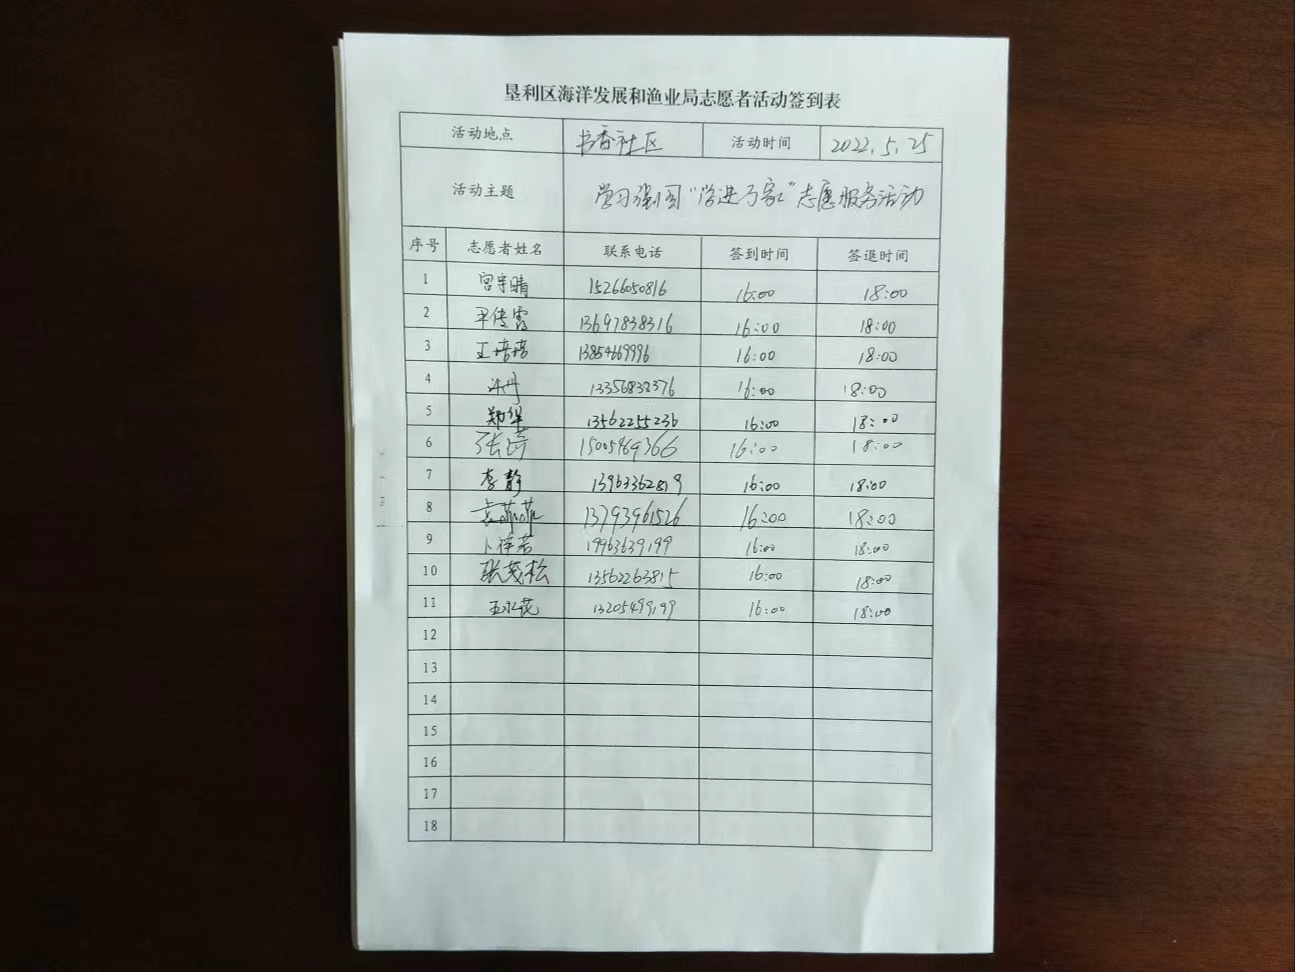 垦利区海洋发展和渔业局志愿者活动签到表
活动地点 书香社区 活动时间 2022.5.25
活动主题 学习强国“学进万家”志愿服务活动
序号 志愿者姓名 联系电话 签到时间 签退时间
1 宫宇晴 15266050816 16:00 18:00
2 尹传霞 13697838316 16:00 18:00
3 王培培 13854669996 16:00 18:00
4 13356838376 16:00 18:00
5 郑华 13562255236 16:00 18:00
6 15005469366 16:00 18:00
7 李静 13963362819 16:00 18:00
8 袁菲菲 13793961526 16:00 18:00
9 19963639199 16:00 18:00
10 张茂松 13562263815 16:00 18:00
11 13205499199 16:00 18:00
12
13
14
15
16
17
18